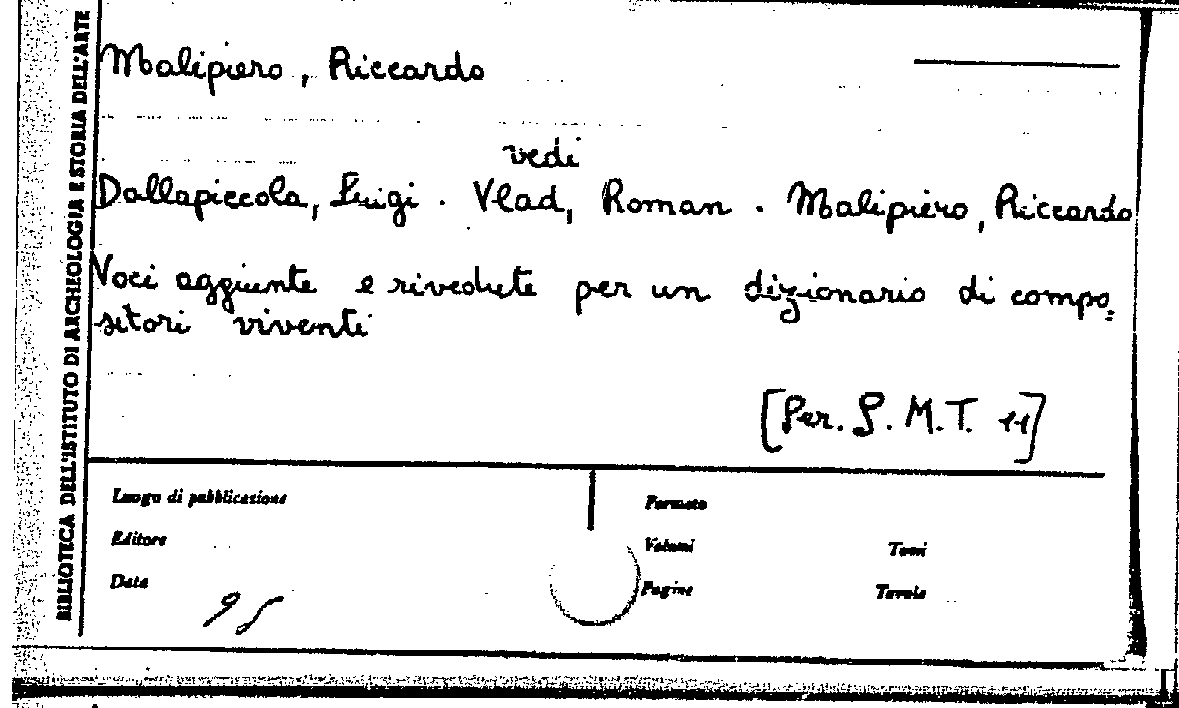 BIBLIOTECA DELL'ISTITUTO DI ARCHEOLOGIA E STORIA DELL'ARTE
Malipiero, Riccardo
vedi
Dallapiccola, Luigi . Vlad, Roman . Malipiero, Riccardo
Voci aggiunte e rivedute per un dizionario di compo=
sitori viventi
[Per. S. M. T. 11]
Luogo di pubblicazione
Formato
Editore
Volumi
Tomi
Data
Pagine
Tavole